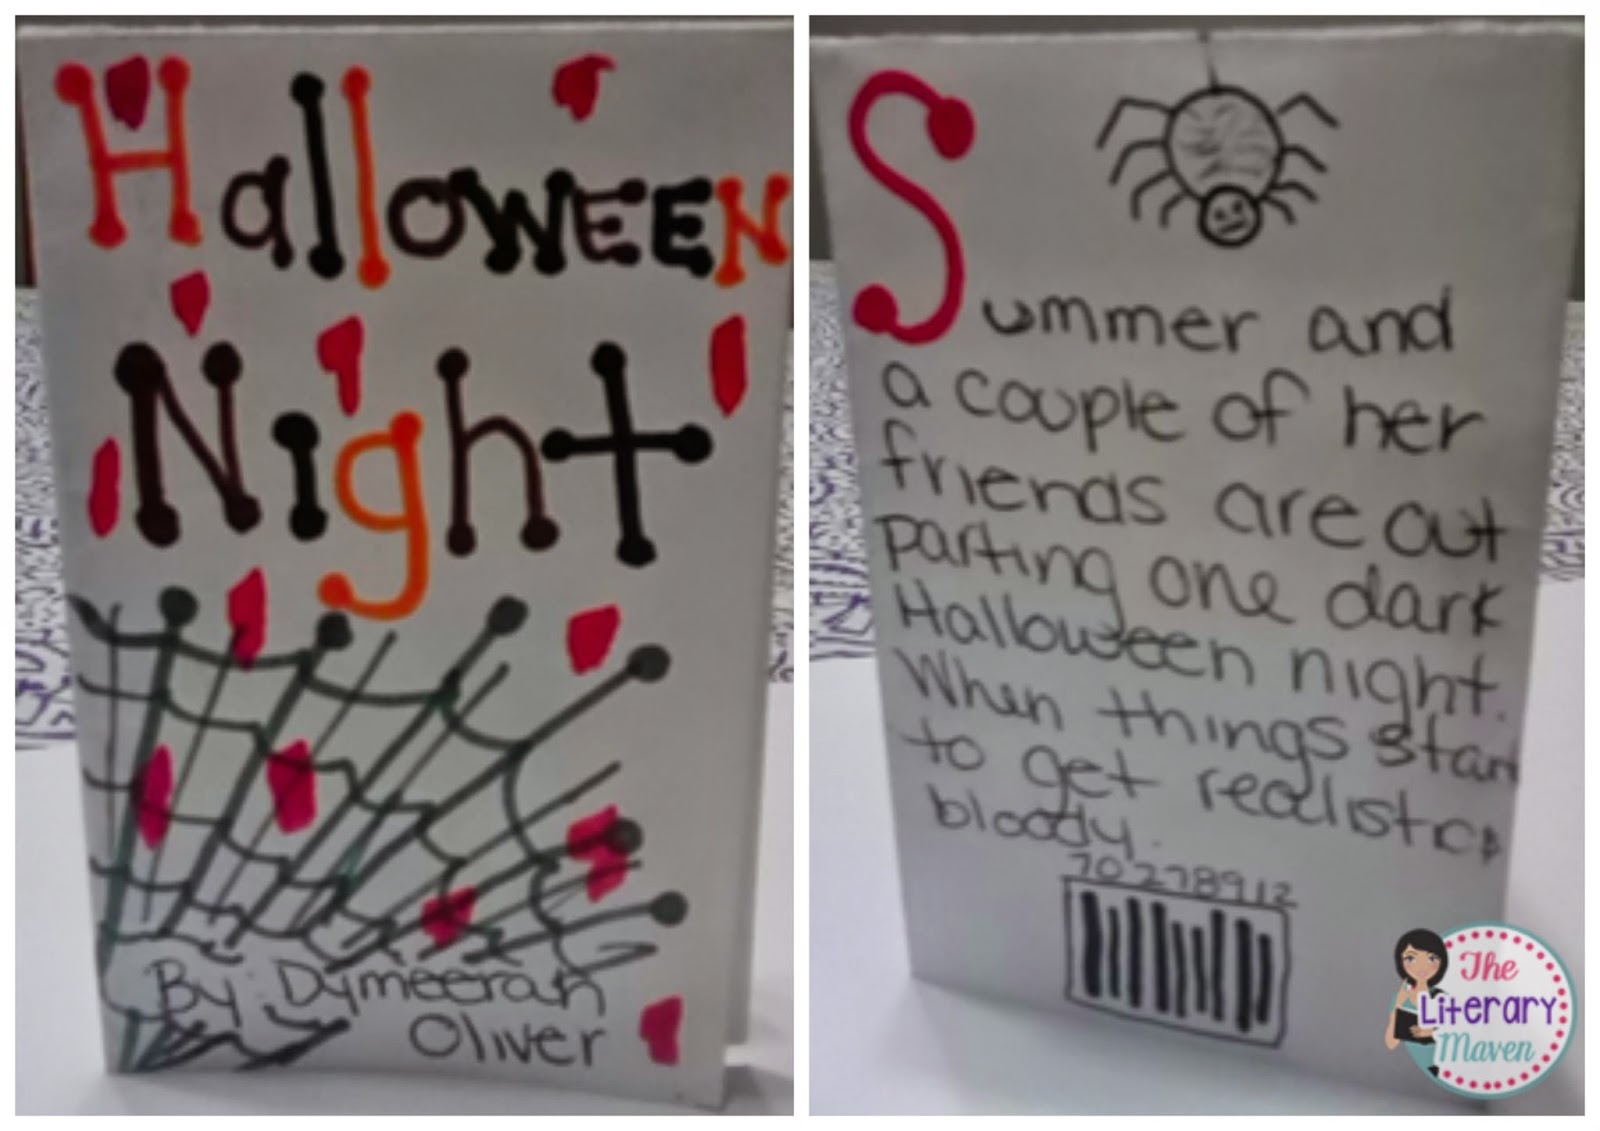 Halloween
Night
By Dymeeran
Oliver
Summer and
a couple of her
friends are out
parting one dark
Halloween night.
When things start
to get realistic &
bloody.
70278912
The
Literary
Maven